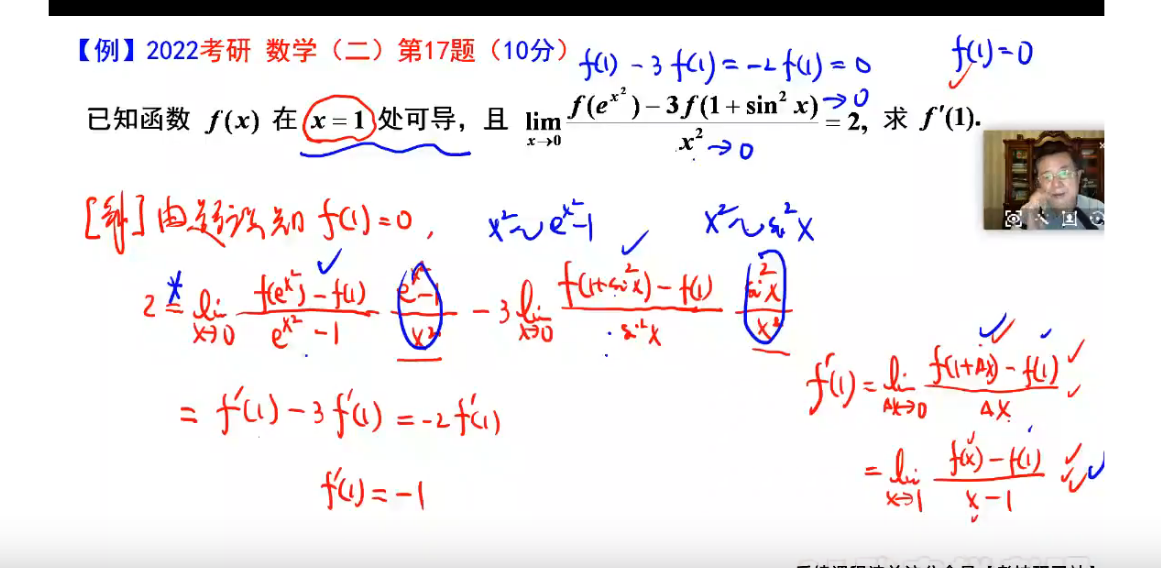 【例】2022考研 数学（二）第17题（10分）
f(1) - 3f(1) = -2f(1) = 0
f(1) = 0
已知函数 f(x) 在 x = 1 处可导，且 lim_{x→0} (f(e^{x²}) − 3f(1 + sin² x))/x² = 2, 求 f′(1).
→0
→0
[解] 由题设知 f(1) = 0,
x² ~ e^{x²}-1
x² ~ sin²x
2 = lim_{x→0} (f(e^{x²}) - f(1))/(e^{x²} - 1) (e^{x²}-1)/x² - 3 lim_{x→0} (f(1+sin²x) - f(1))/(sin²x) (sin²x)/x²
= f'(1) - 3f'(1) = -2f'(1)
f'(1) = -1
f'(1) = lim_{Δx→0} (f(1+Δx) - f(1))/Δx
= lim_{x→1} (f(x) - f(1))/(x-1)